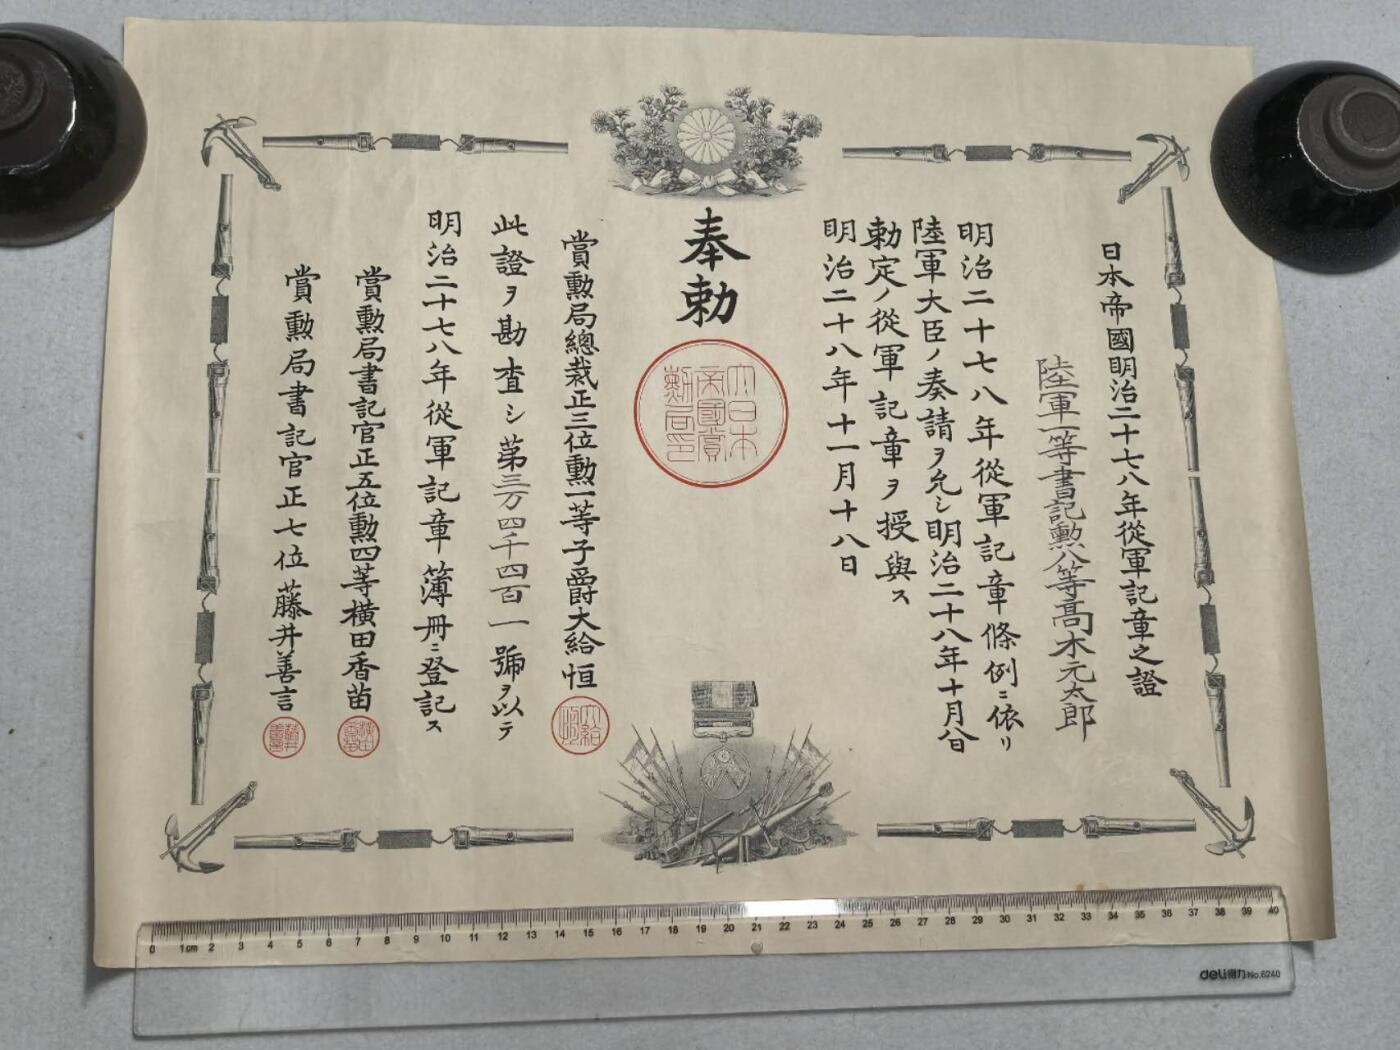 日本帝國明治二十七八年從軍記章之證
陸軍一等書記勲八等髙木元太郎
明治二十七八年從軍記章條例ニ依リ
陸軍大臣ノ奏請ヲ允シ明治二十八年十月八日
勅定ノ從軍記章ヲ授與ス
明治二十八年十一月十八日
奉勅
大日本
帝國賞
勲局印
賞勲局總裁正三位勲一等子爵大給恒
大給
恒
此證ヲ勘査シ第三万四千四百一號ヲ以テ
明治二十七八年從軍記章簿冊ニ登記ス
賞勲局書記官正五位勲四等横田香苗
横田
香苗
賞勲局書記官正七位藤井善言
藤井
善言
0 1cm 2 3 4 5 6 7 8 9 10 11 12 13 14 15 16 17 18 19 20 21 22 23 24 25 26 27 28 29 30 31 32 33 34 35 36 37 38 39 40
deli得力 No.6240